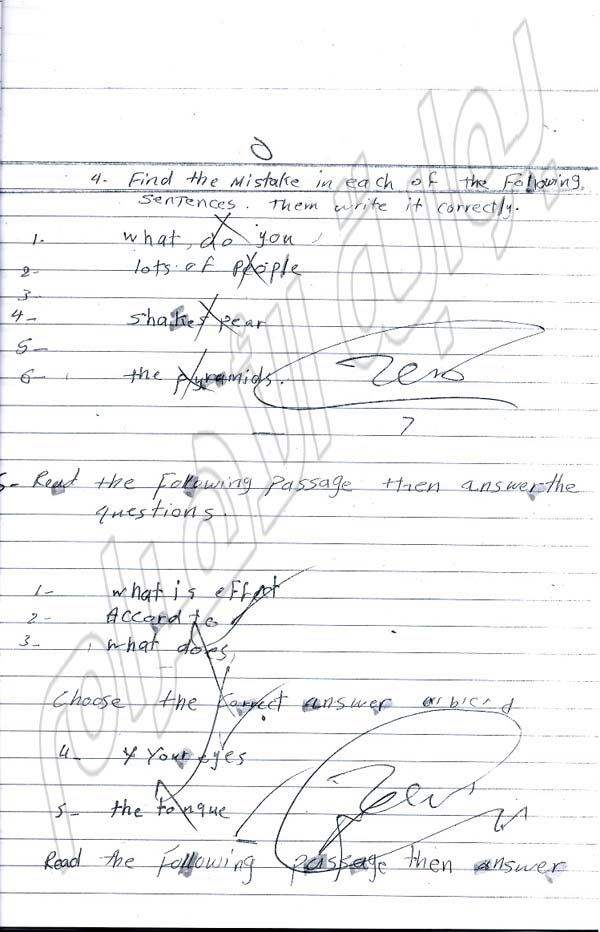 4- Find the Mistake in each of the Following
sentences. Them write it correctly.
1. what, do you
2- lots of people
3-
4- shakespear
5-
6- the pyramids.
Zero
7
5- Read the Following passage then answer the
questions.
1- what is effet
2- Accord to
3- what does
Choose the correct answer
4- your eyes
5- the tongue
Zero
Read the Following passage then answer